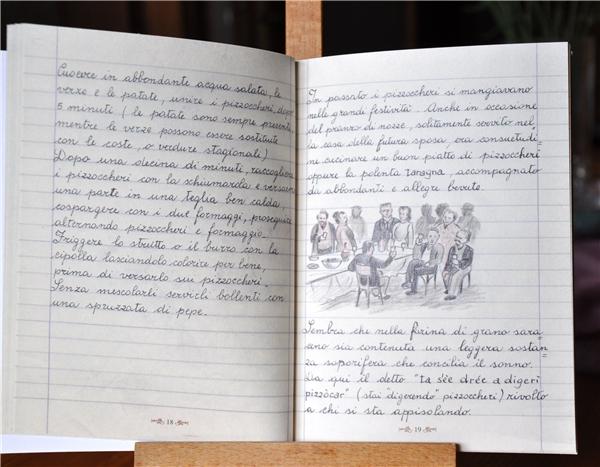 Cuocere in abbondante acqua salata, le
verze e le patate, unire i pizzoccheri, dopo
5 minuti (le patate sono sempre presenti,
mentre le verze possono essere sostituite
con le coste, o verdure stagionali)
Dopo una decina di minuti, raccogliere
i pizzoccheri con la schiumarola e versarne
una parte in una teglia ben calda,
cospargere con i due formaggi, proseguire
alternando pizzoccheri e formaggio-
Friggere lo strutto o il burro con la
cipolla lasciandolo colorire per bene,
prima di versarlo sui pizzoccheri-
Senza mescolarli servirli bollenti con
una spruzzata di pepe.
18
In passato i pizzoccheri si mangiavano
nelle grandi festività. Anche in occasione
del pranzo di nozze, solitamente servito nel=
la casa della futura sposa, era consuetudi=
ne cucinare un buon piatto di pizzoccheri
oppure la polenta taragna, accompagnato
da abbondanti e allegre bevute.
Sembra che nella farina di grano sara=
ceno sia contenuta una leggera sostan=
za soporifera che concilia il sonno.
Da qui il detto "ta sèe drèe a digerì
pizzòcar" (stai "digerendo" pizzoccheri) rivolto
a chi si sta appisolando.
19